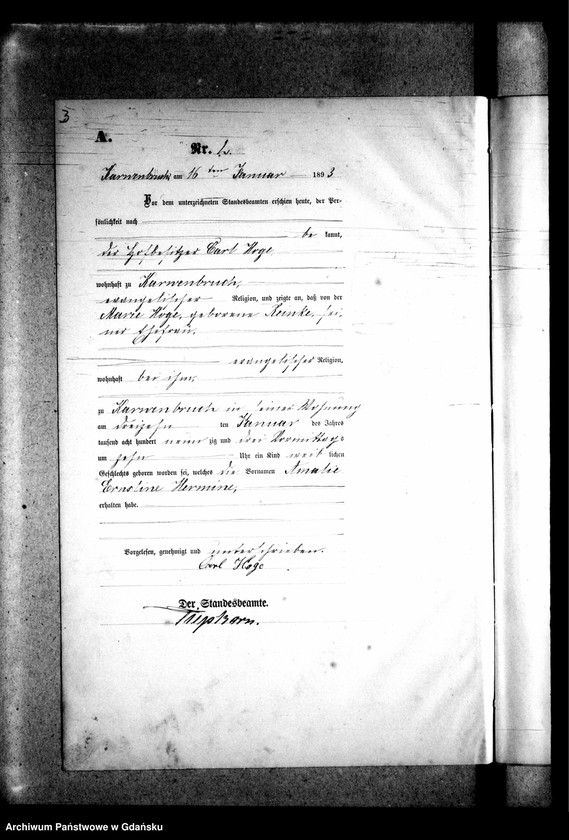 3
A.
Nr.
Karwenbruch am 16ten Januar 1893
Vor dem unterzeichneten Standesbeamten erschien heute, der Per-
sönlichkeit nach
be kannt,
der Hofbesitzer Carl Hoge
wohnhaft zu Karwenbruch,
evangelischer Religion, und zeigte an, daß von der
Marie Hoge, geborene Remke, sei-
ner Ehefrau,
evangelischer Religion,
wohnhaft bei ihm,
zu Karwenbruch in seiner Wohnung
am dreizehn ten Januar des Jahres
tausend acht hundert neun zig und drei Vormittags
um zehn Uhr ein Kind weib lichen
Geschlechts geboren worden sei, welches die Vornamen Amalie
Ernstine Hermine,
erhalten habe.
Vorgelesen, genehmigt und unterschrieben.
Carl Hoge
Der Standesbeamte.
Archiwum Państwowe w Gdańsku